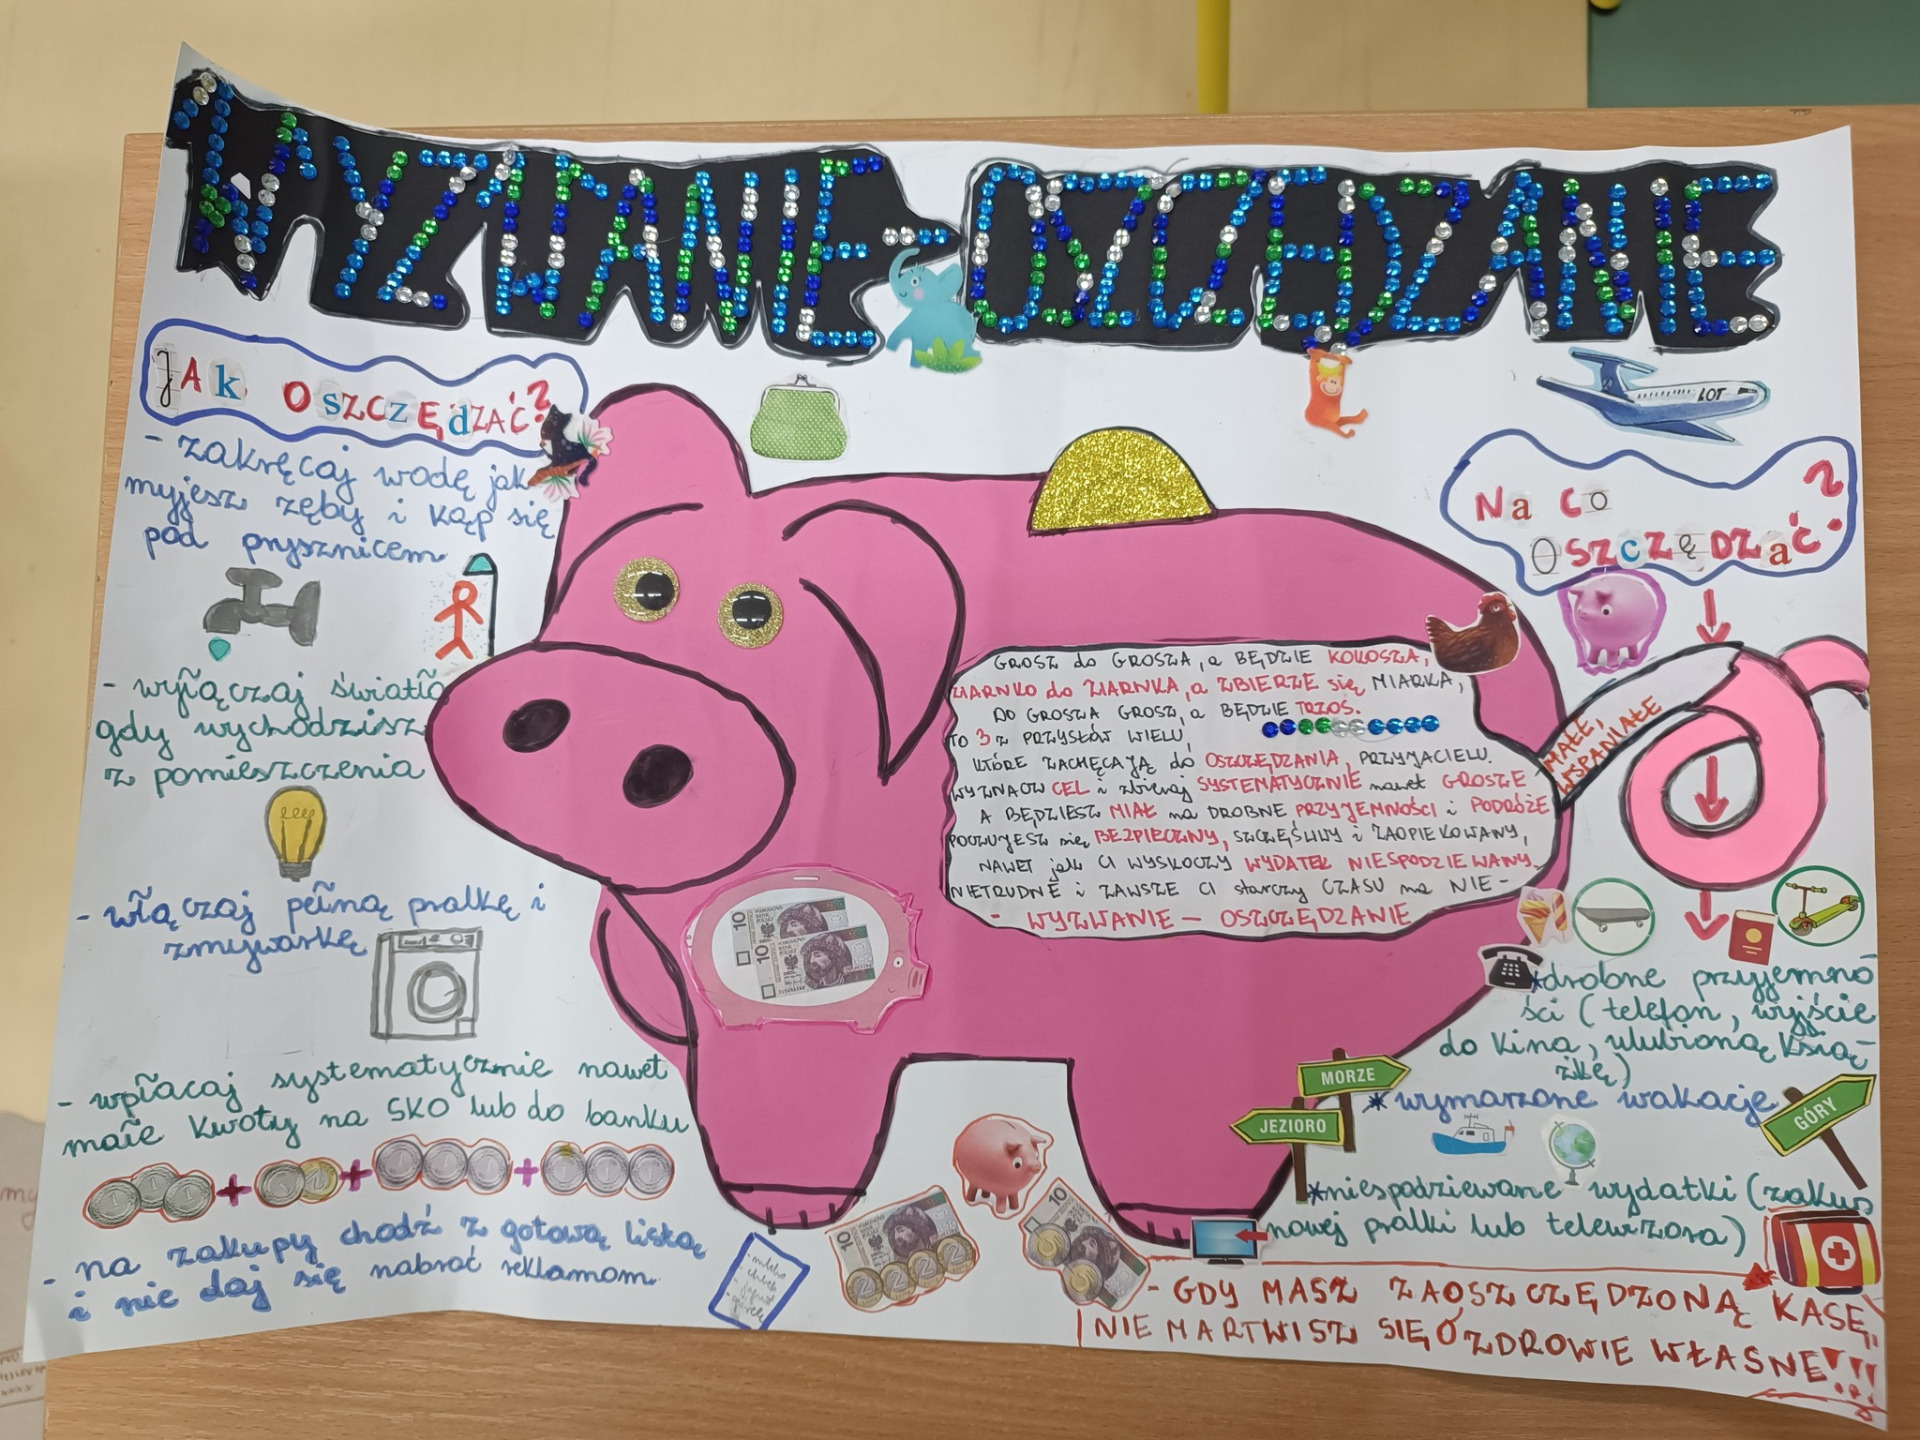 WYZWANIE - OSZCZĘDZANIE
JAk OSZCZĘdZAĆ?
- zakręcaj wodę jak
myjesz zęby i kąp się
pod prysznicem
- wyłączaj światło
gdy wychodzisz
z pomieszczenia
- włączaj pełną pralkę i
zmywarkę
- wpłacaj systematycznie nawet
małe kwoty na SKO lub do banku
- na zakupy chodź z gotową listą
i nie daj się nabrać reklamom
GROSZ do GROSZA, a BĘDZIE KOKOSZA,
ZIARNKO do ZIARNKA, a ZBIERZE się MIARKA,
DO GROSZA GROSZ, a BĘDZIE TRZOS.
TO 3 z PRZYSŁÓW WIELU,
KTÓRE ZACHĘCAJĄ do OSZCZĘDZANIA, PRZYJACIELU.
WYZNACZ CEL i zbieraj SYSTEMATYCZNIE nawet GROSZE
A BĘDZIESZ MIAŁ na DROBNE PRZYJEMNOŚCI i PODRÓŻE
POCZUJESZ się BEZPIECZNY, SZCZĘŚLIWY i ZAOPIEKOWANY,
NAWET jak CI WYSKOCZY WYDATEK NIESPODZIEWANY.
NIETRUDNE i ZAWSZE CI starczy CZASU na NIE -
- WYZWANIE - OSZCZĘDZANIE
10
10
LOT
Na CO
OSZCZĘDZaĆ?
MAŁE,
WSPANIAŁE
*drobne przyjemno
ści (telefon, wyjście
do kina, ulubioną ksią-
żkę)
MORZE
JEZIORO
GÓRY
*wymarzone wakacje
*niespodziewane wydatki (zakup
nowej pralki lub telewizora)
10
10
- GDY MASZ ZAOSZCZĘDZONĄ KASĘ,
NIE MARTWISZ SIĘ O ZDROWIE WŁASNE!!!